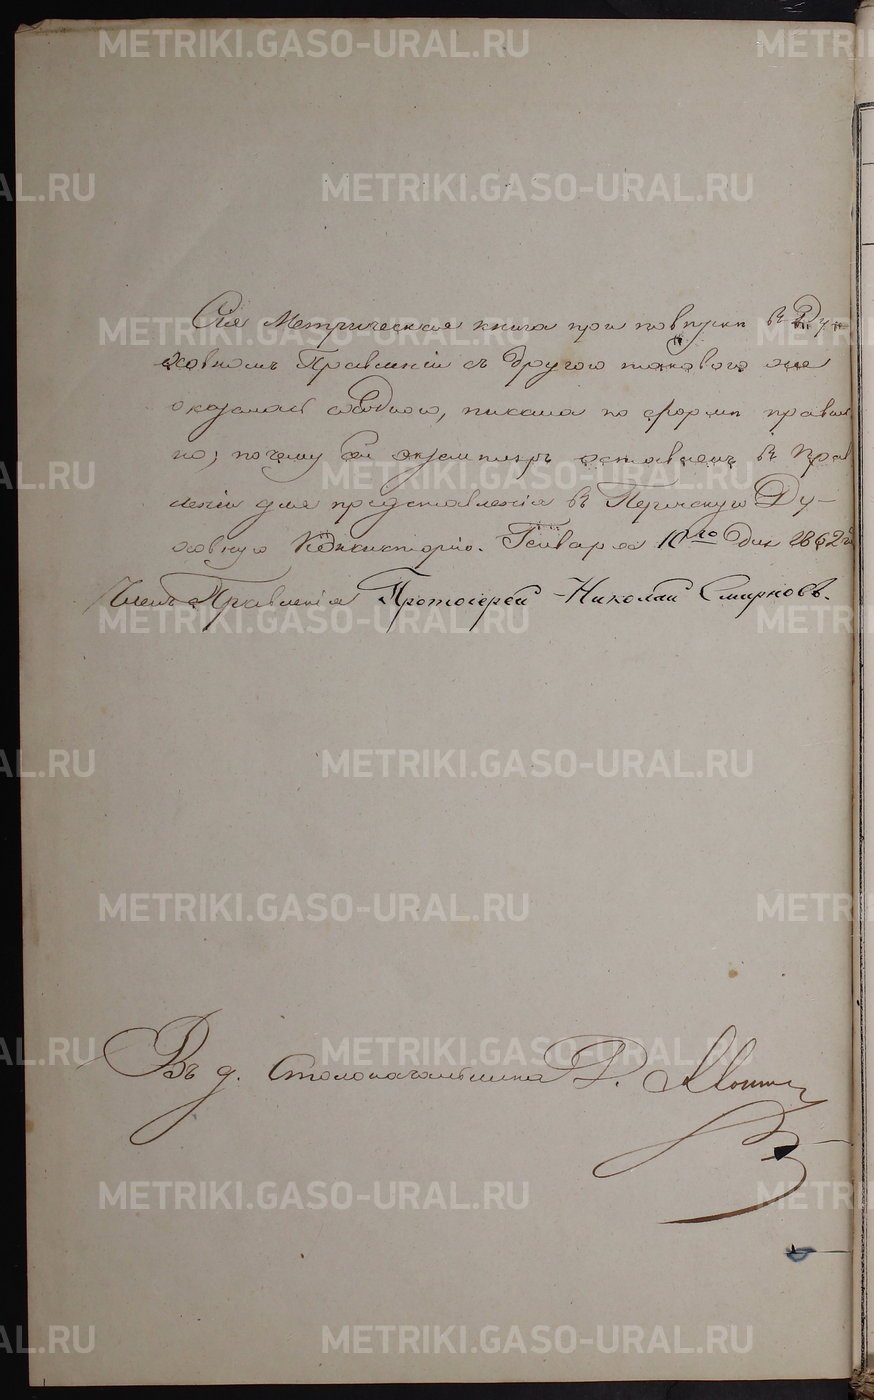 METRIKI.GASO-URAL.RU
Сія Метрическая книга при повѣркѣ въ Ду-
ховномъ Правленіи съ другою таковою же
оказалась сходною, писана по формѣ правиль
но; почему сей экземпляръ оставленъ въ Прав
леніи для представленія въ Пермскую Ду-
ховную Консисторію. Генваря 10го дня 1862 г.
Членъ Правленія Протоіерей Николай Смирновъ.
Въ д. Столоначальника